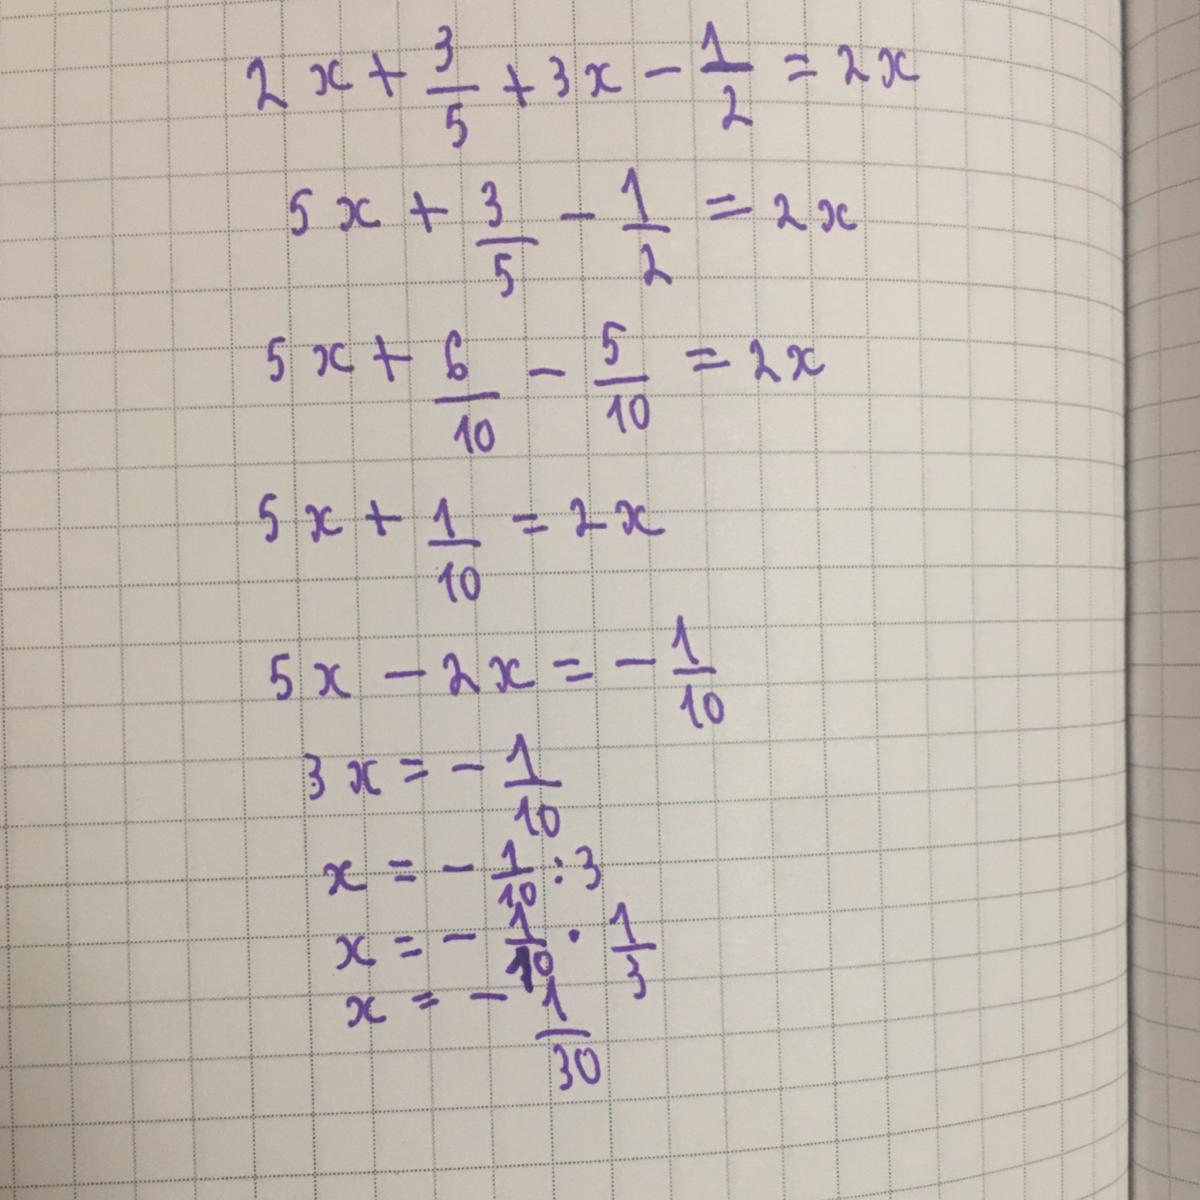 2x + 3/5 + 3x - 1/2 = 2x
5x + 3/5 - 1/2 = 2x
5x + 6/10 - 5/10 = 2x
5x + 1/10 = 2x
5x - 2x = - 1/10
3x = - 1/10
x = - 1/10 : 3
x = - 1/10 · 1/3
x = - 1/30